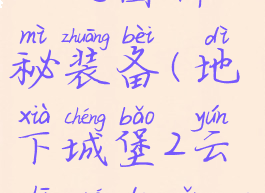 mì zhuāng bèi dì
秘装备(地
xià chéng bǎo yún
下城堡2云